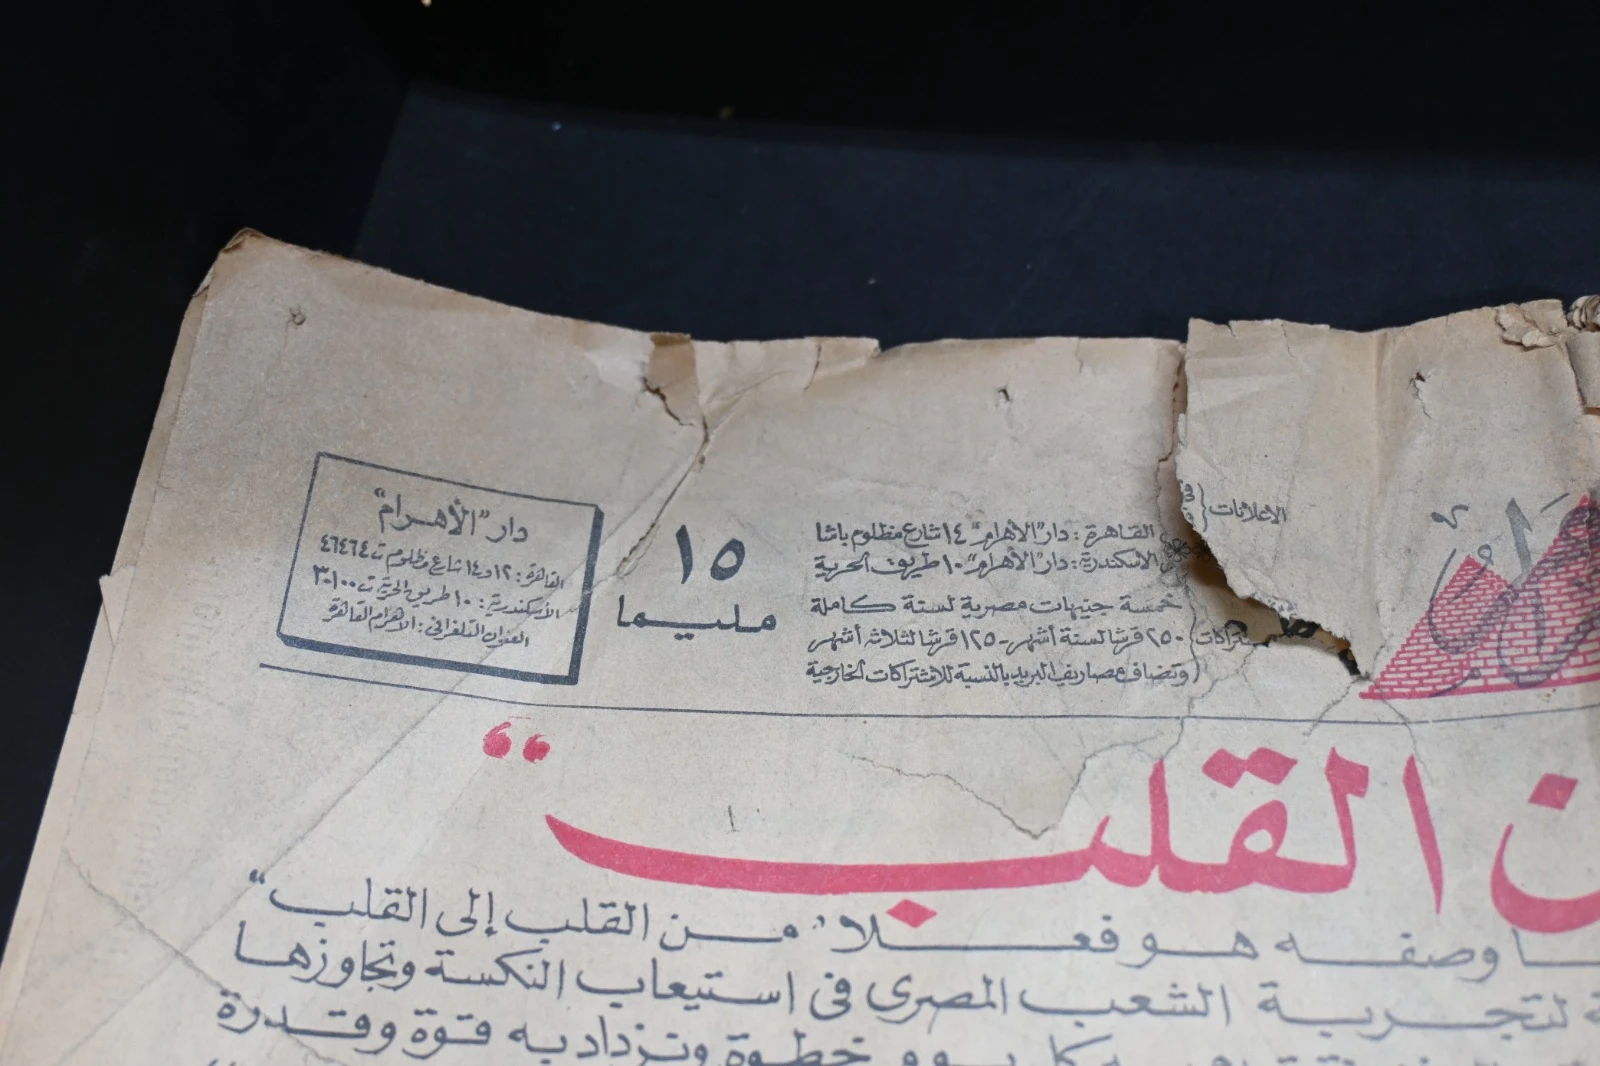 الاعلانات
القاهرة : دار "الأهرام" ١٤ شارع مظلوم باشا
الاسكندرية : دار "الأهرام" ١٠ طريق الحرية
خمسة جنيهات مصرية لسنة كاملة
٢٥٠ قرشا لستة أشهر - ١٢٥ قرشا لثلاثة أشهر
(وتضاف مصاريف البريد بالنسبة للاشتراكات الخارجية
١٥
مليما
دار "الأهرام"
القاهرة : ١٢ و ١٤ شارع مظلوم ت ٤٦٤٦٤
الاسكندرية : ١٠ طريق الحرية ت ٣٠١٠٠
العنوان التلغرافى : الاهرام القاهرة
ن القلب "
وصفه هو فعلا "من القلب إلى القلب"
لتجربة الشعب المصرى فى استيعاب النكسة وتجاوزها
خطوة وتزداد به قوة وقدرة